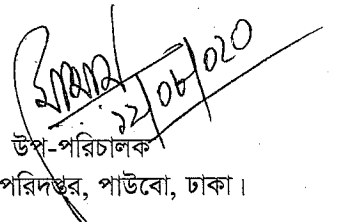 ১২/০৮/০২০
উপ-পরিচালক
পরিদপ্তর, পাউবো, ঢাকা।